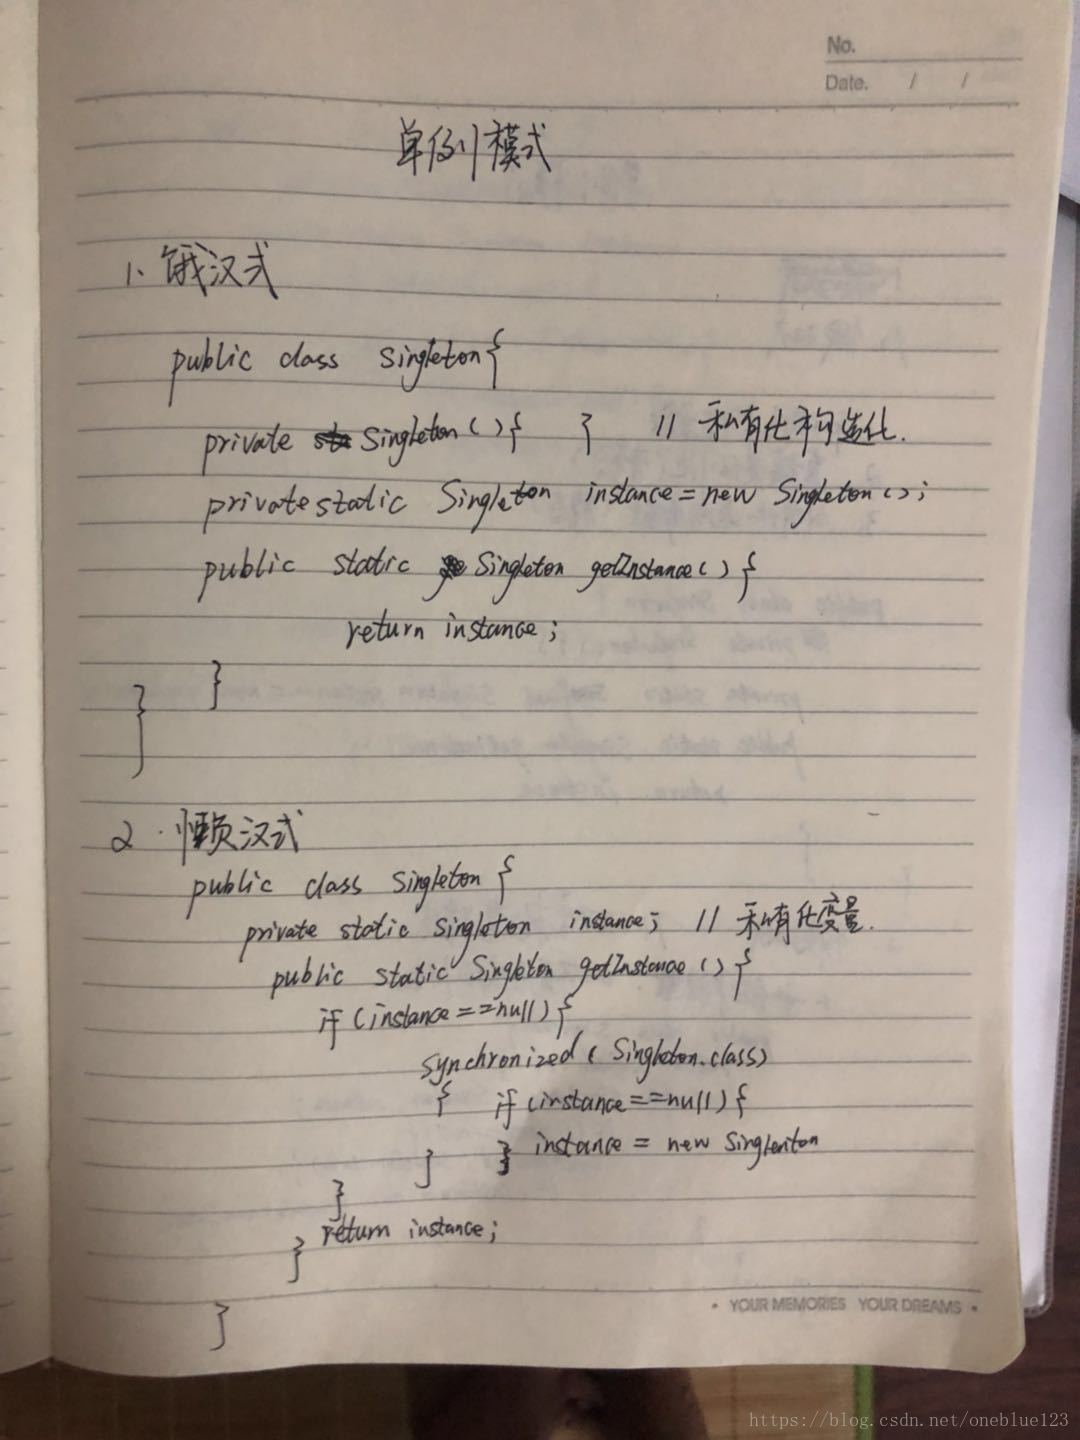 No.
Date. / /
单例模式
1、饿汉式
public class Singleton{
private Singleton(){ } // 私有化构造化.
private static Singleton instance=new Singleton();
public static Singleton getInstance(){
return instance;
}
}
2. 懒汉式
public class Singleton{
private static Singleton instance; // 私有化变量.
public static Singleton getInstance(){
if(instance==null){
synchronized(Singleton.class)
{ if(instance==null){
instance = new Singleniton
} }
}
return instance;
}
}
• YOUR MEMORIES YOUR DREAMS •
https://blog.csdn.net/oneblue123